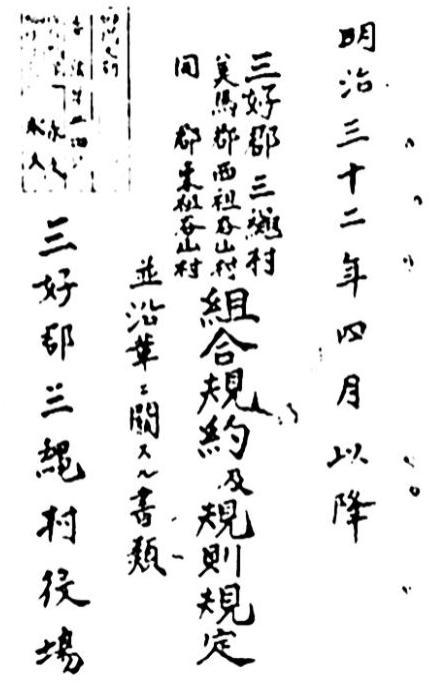 明治三十二年四月以降
三好郡三縄村
美馬郡西祖谷山村
同郡東祖谷山村
組合規約及規則規定
並沿革ニ關スル書類
三好郡三縄村役場
永久